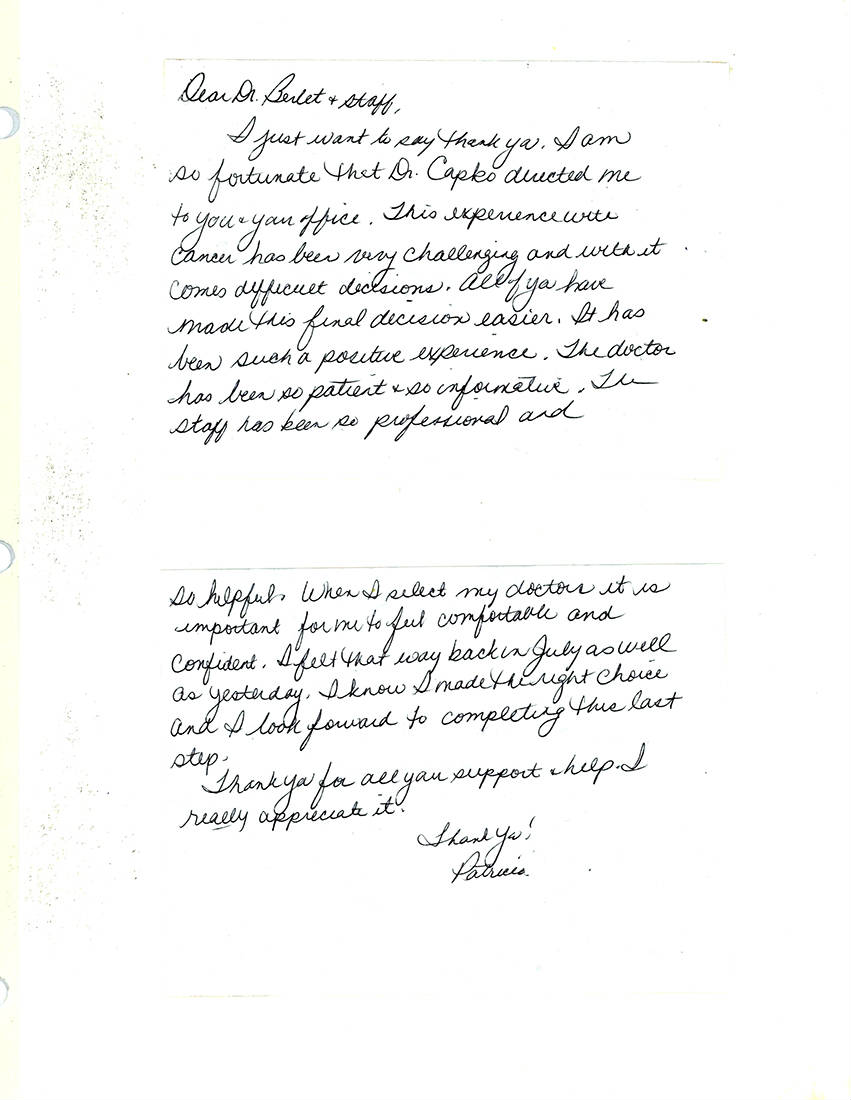 Dear Dr. Berlet & staff,
I just want to say thank ya. I am
so fortunate that Dr. Capko directed me
to you & your office. This experience with
cancer has been very challenging and with it
comes difficult decisions. All of ya have
made this final decision easier. It has
been such a positive experience. The doctor
has been so patient & so informative. The
staff has been so professional and
so helpful. When I select my doctors it is
important for me to feel comfortable and
confident. I felt that way back in July as well
as yesterday. I know I made the right choice
and I look forward to completing this last
step.
Thank Ya for all your support & help. I
really appreciate it.
Thank Ya!
Patricia